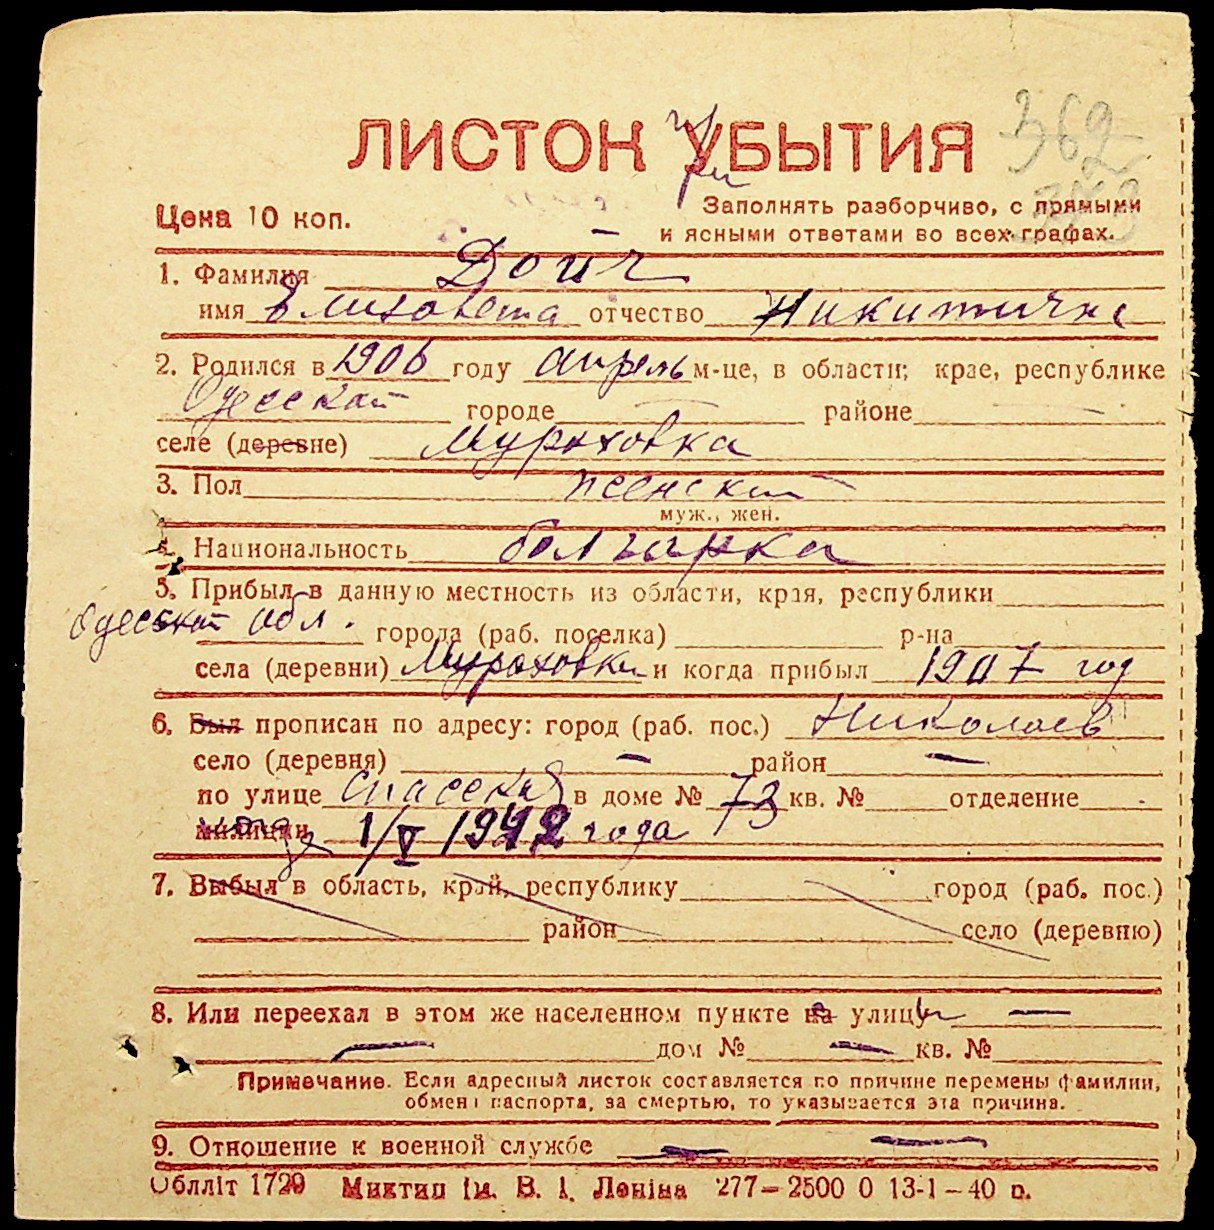 362
ЛИСТОК УБЫТИЯ
при
Цена 10 коп.
Заполнять разборчиво, с прямыми
и ясными ответами во всех графах.
1. Фамилия Дойч
имя Елизовета отчество Никитична
2. Родился в 1906 году апрель м-це, в области; крае, республике
Одесской городе — районе —
селе (деревне) Мураховка
3. Пол женский
муж., жен.
4. Национальность болгарка
5. Прибыл в данную местность из области, края, республики
Одесской обл. города (раб. поселка) р-на
села (деревни) Мураховки и когда прибыл 1907 год
6. Был прописан по адресу: город (раб. пос.) Николаев
село (деревня) — район —
по улице Спасской в доме № 73 кв. № отделение
милиции 1/V 1942 года
7. Выбыл в область, край, республику город (раб. пос.)
район село (деревню)
8. Или переехал в этом же населенном пункте на улицу —
— дом № — кв. №
Примечание. Если адресный листок составляется по причине перемены фамилии,
обмена паспорта, за смертью, то указывается эта причина.
9. Отношение к военной службе — —
Облліт 1729 Миктип ім. В. І. Леніна 277—2500 0 13-1—40 р.